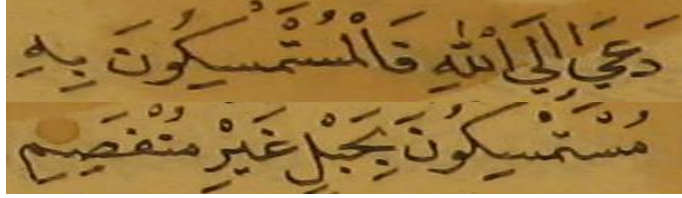 دَعَيٰ اِلَي اللّٰهِ فَالْمُسْتَمْسِكُونَ بِهِ
مُسْتَمْسِكُونَ بِحَبْلٍ غَيْرِ مُنْفَصِمِ